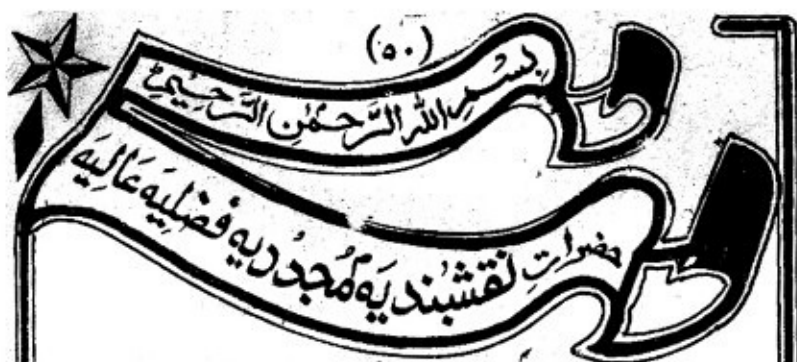 (۵۰)
بِسْمِ اللهِ الرَّحْمٰنِ الرَّحِيْمِ
حضراتِ نقشبندیہ مُجددیہ فضلیہ عالیہ